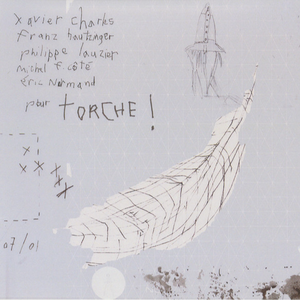 xavier charles
franz hautzinger
philippe lauzier
michel f. côté
éric normand
pour TORCHE!
07/01